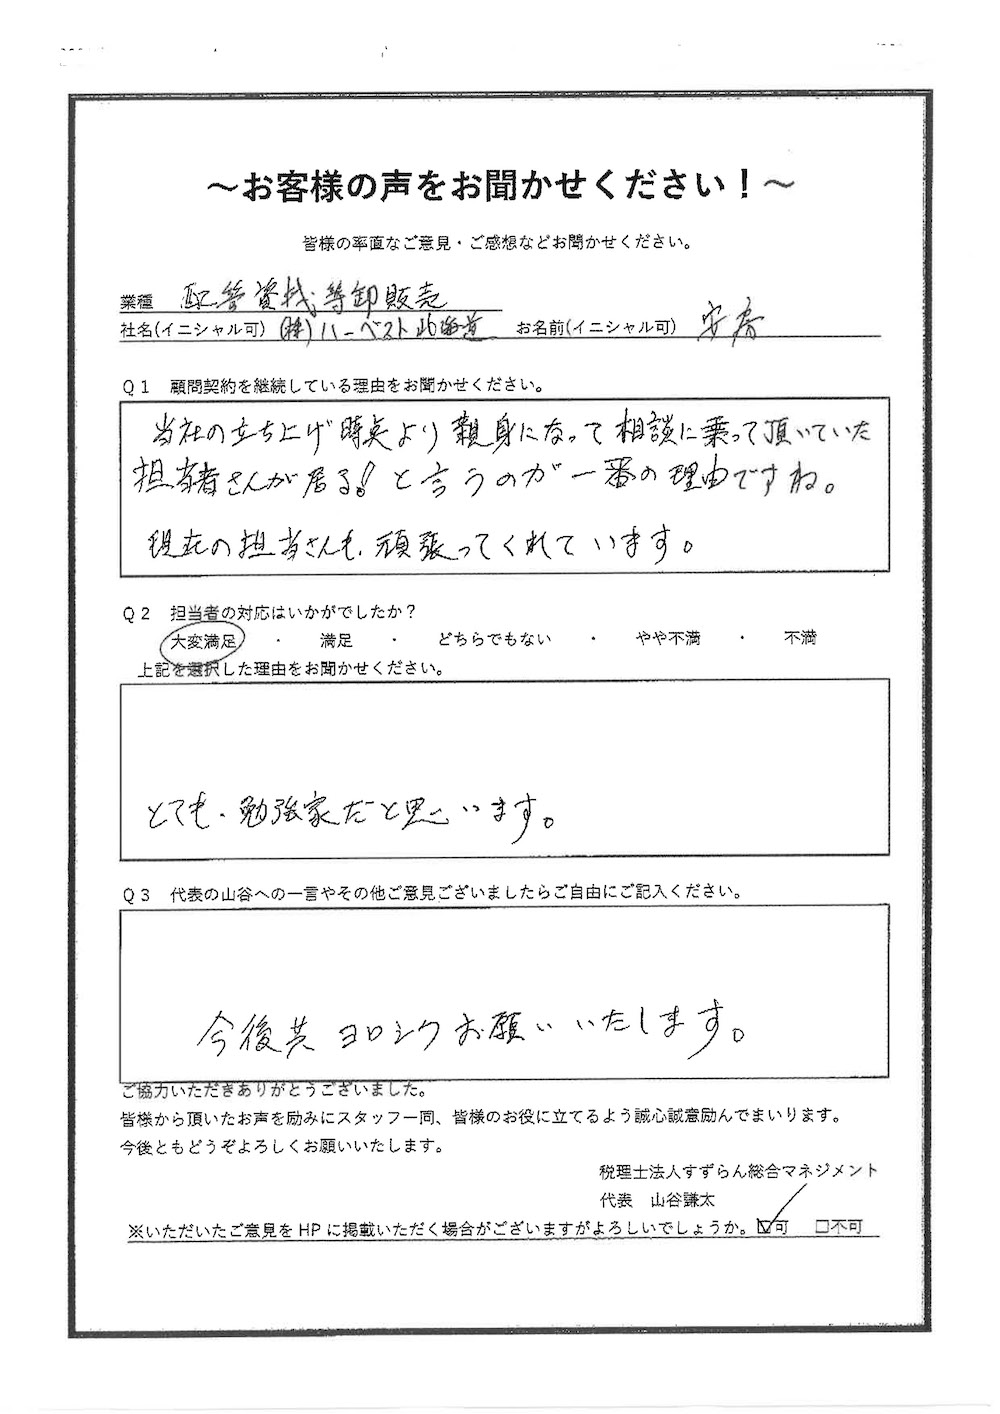 ～お客様の声をお聞かせください！～
皆様の率直なご意見・ご感想などお聞かせください。
業種 配管資機等卸販売
社名(イニシャル可) (株)ハーベスト北海道 お名前(イニシャル可) 安春
Ｑ１ 顧問契約を継続している理由をお聞かせください。
当社の立ち上げ時点より親身になって相談に乗って頂いていた
担当者さんが居る！と言うのが一番の理由ですね。
現在の担当さんも、頑張ってくれています。
Ｑ２ 担当者の対応はいかがでしたか？
大変満足 ・ 満足 ・ どちらでもない ・ やや不満 ・ 不満
上記を選択した理由をお聞かせください。
とても、勉強家だと思います。
Ｑ３ 代表の山谷への一言やその他ご意見ございましたらご自由にご記入ください。
今後共ヨロシクお願いいたします。
ご協力いただきありがとうございました。
皆様から頂いたお声を励みにスタッフ一同、皆様のお役に立てるよう誠心誠意励んでまいります。
今後ともどうぞよろしくお願いいたします。
税理士法人すずらん総合マネジメント
代表 山谷謙太
※いただいたご意見をHPに掲載いただく場合がございますがよろしいでしょうか。☑可 □不可